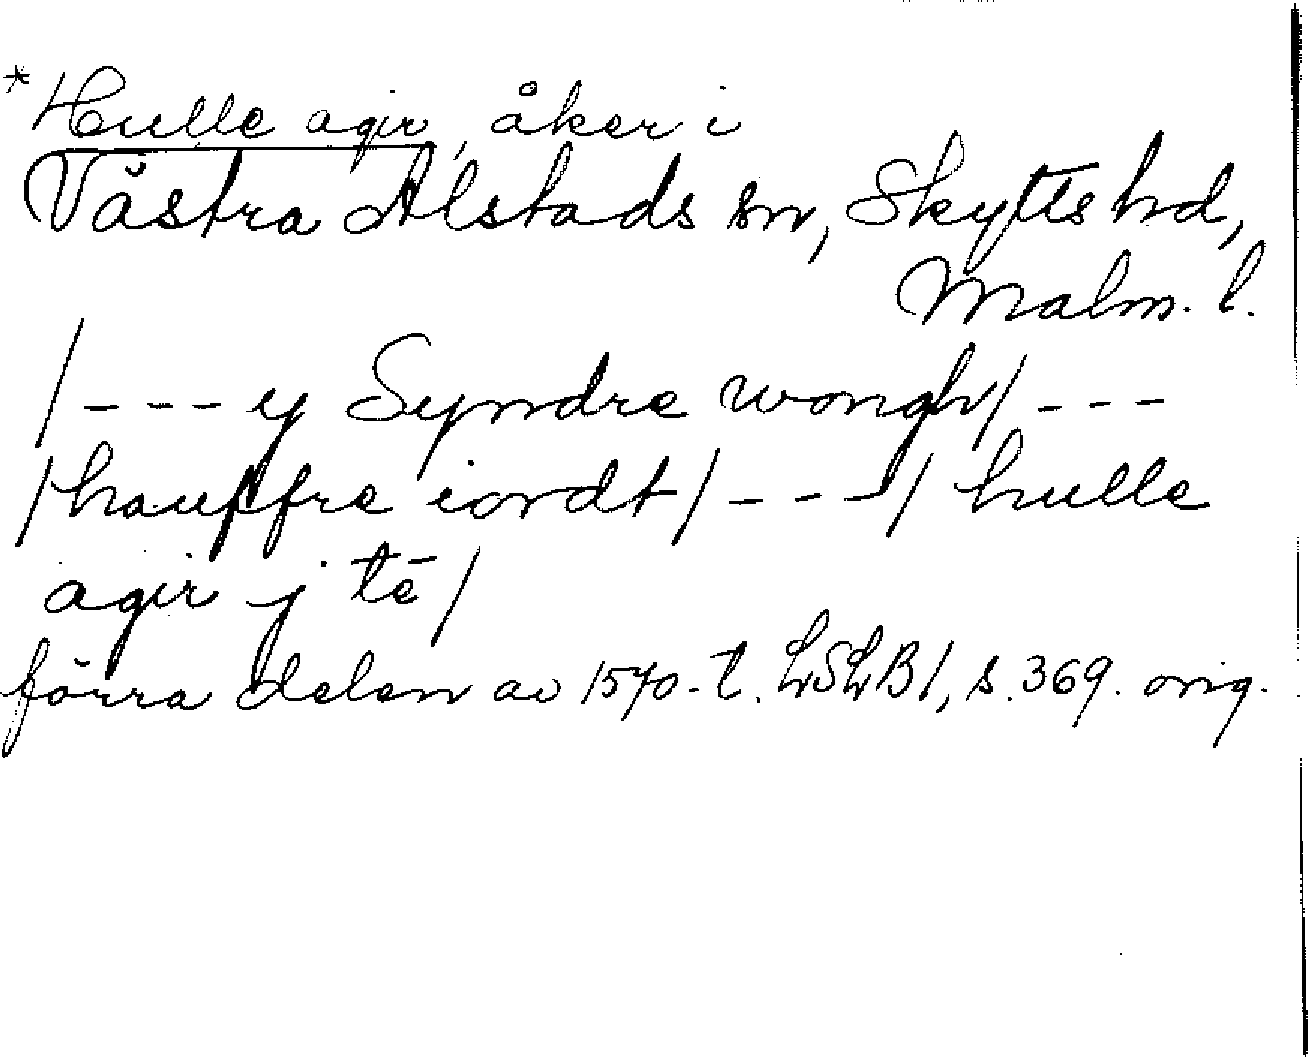 *Hulle agir, åker i
Västra Alstads sn, Skytts hd,
Malm. l.
/---y Syndre wongh/---
/hauffre iordt/---/hulle
agir j tē/
förra delen av 1570-t. LSLB1, s.369. orig.